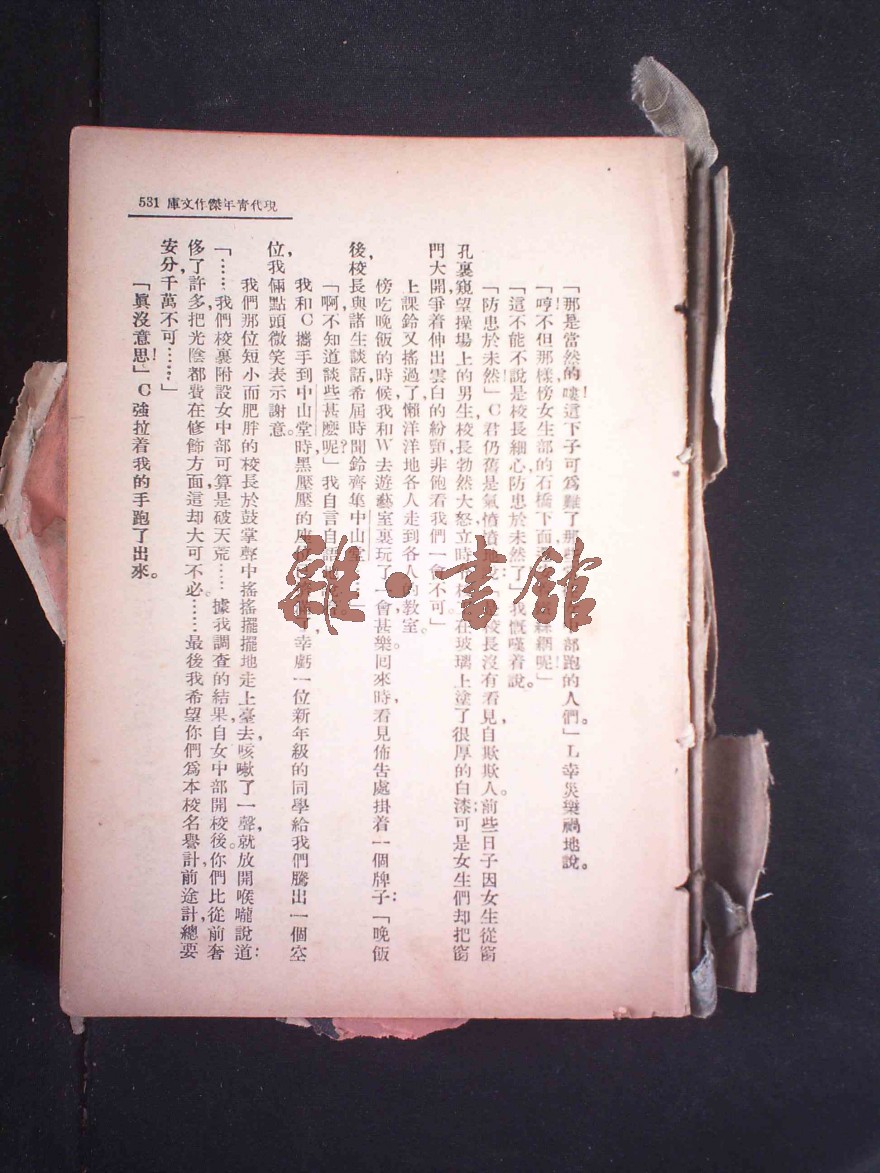 現代青年傑作文庫 531
「那是當然的嘍!這下子可爲難了那些 部跑的人們。」L幸災樂禍地說。
「哼!不但那樣,傍女生部的石橋下面 絲網呢!」
「這不能不說是校長細心,防患於未然了!」我慨嘆着說。
「防患於未然!」C君仍舊是氣憤憤 校長沒有看見,自欺欺人。前些日子因女生從窗
孔裏窺望操場上的男生,校長勃然大怒,立時 在玻璃上塗了很厚的白漆;可是女生們却把窗
門大開,爭着伸出雲白的紛頸,非飽看我們一會不可」
上課鈴又搖過了,懶洋洋地各人走到各人的教室。
傍吃晚飯的時候,我和W去遊藝室裏玩了一會,甚樂。囘來時,看見佈告處掛着一個牌子:「晚飯
後,校長與諸生談話,希屆時聞鈴齊集中山堂……」
「啊,不知道談些甚麼呢?」我自言自語
我和C攜手到中山堂時,黑壓壓的座位 了,幸虧一位新年級的同學給我們騰出一個空
位,我倆點頭微笑表示謝意。
我們那位短小而肥胖的校長於鼓掌聲中搖搖擺擺地走上臺去,咳嗽了一聲,就放開喉嚨說道:
「……我們校裏附設女中部可算是破天荒……據我調查的結果,自女中部開校後。你們比從前奢
侈了許多,把光陰都費在修飾方面,這却大可不必。……最後我希望你們爲本校名譽計,前途計,總要
安分,千萬不可……」
「眞沒意思!」C強拉着我的手跑了出來。
雜·書館